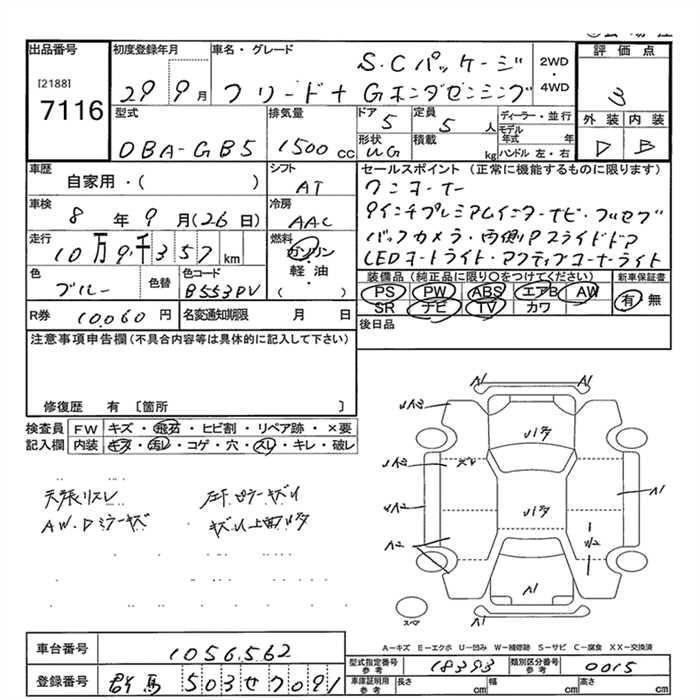 出品番号
[2188]
7116
初度登録年月
29 9月
車名・グレード
S.Cパッケージ
フリード+ Gホンダセンシング
2WD
・
4WD
評価点
3
外装 内装
D B
型式
DBA-GB5
排気量
1500 cc
ドア
5
定員
5 人
形状
WG
積載
kg
ディーラー・並行
モデル
年式 年
ハンドル 左・右
車歴
自家用・( )
シフト
AT
車検
8 年 9 月(26日)
冷房
AAC
走行
10万9千357 km
燃料
ガソリン
・
軽・油
( )
色
ブルー
色替
色コード
B553PV
R券 10,060 円
名変通知期限 月 日
セールスポイント(正常に機能するものに限ります)
ワンオーナー
9インチプレミアムインターナビ・フルセグ
バックカメラ・両側Pスライドドア
LEDオートライト・アクティブコーナーライト
装備品(純正品に限り○をつけてください)
PS PW ABS エアB AW
SR ナビ TV カワ
新車保証書
有・無
後日品
注意事項申告欄(不具合内容等は具体的に記入して下さい)
修復歴 有 〔箇所 〕
検査員
記入欄
FW キズ・飛石・ヒビ割・リペア跡・×要
内装 キズ・汚レ・コゲ・穴・スレ・キレ・破レ
天張リスレ
AW.Dミラーキズ
A1 A1
A1
A2
A1
スペア
A-キズ E-エクボ U-凹み W-補修跡 S-サビ C-腐食 XX-交換済
車台番号
1056562
登録番号
群馬 503せ7091
型式指定番号
参考
18393
類別区分番号
参考
0015
車庫証明用
参考
長さ cm
幅 cm
高さ cm